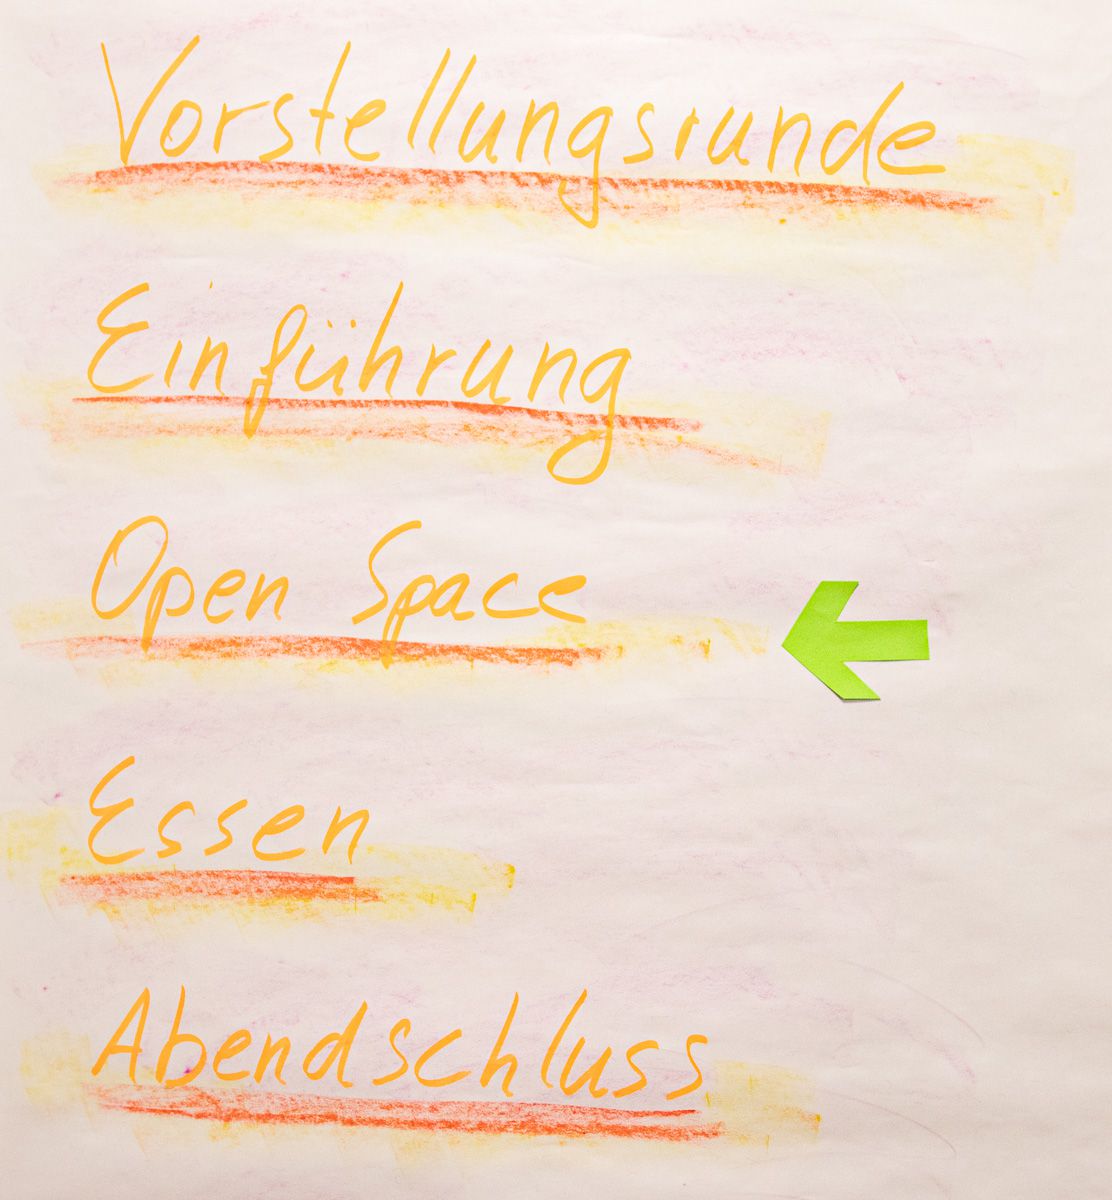 Vorstellungsrunde
Einführung
Open Space
Essen
Abendschluss